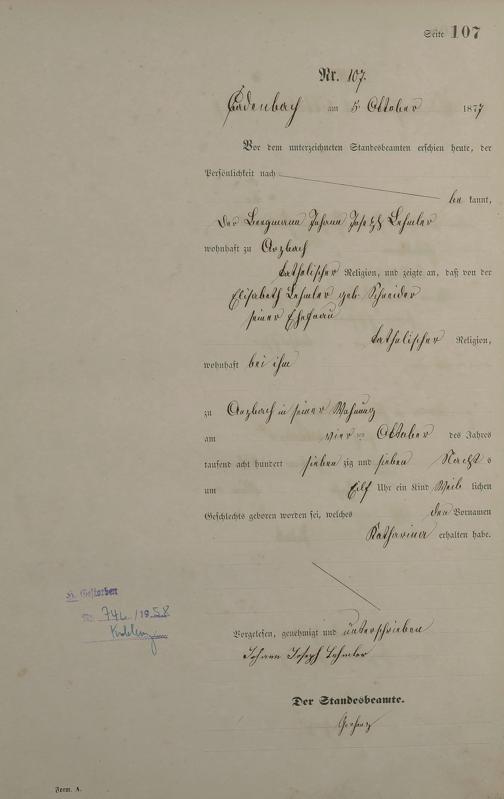 Seite 107
Nr. 107.
Cadenbach am 5 Oktober 1877
Vor dem unterzeichneten Standesbeamten erschien heute, der
Persönlichkeit nach
be kannt,
der Bergmann Johann Joseph Lehmler
wohnhaft zu Arzbach
katholischer Religion, und zeigte an, daß von der
Elisabeth Lehmler geb. Schneider
seiner Ehefrau
katholischer Religion,
wohnhaft bei ihm
zu Arzbach in seiner Wohnung
am vier ten Oktober des Jahres
tausend acht hundert sieben zig und sieben Nacht s
um Eilf Uhr ein Kind Weib lichen
Geschlechts geboren worden sei, welches den Vornamen
Katharina erhalten habe.
Gestorben
Nr. 746 /1958
Koblenz
Vorgelesen, genehmigt und unterschrieben
Johann Joseph Lehmler
Der Standesbeamte.
Form. A.